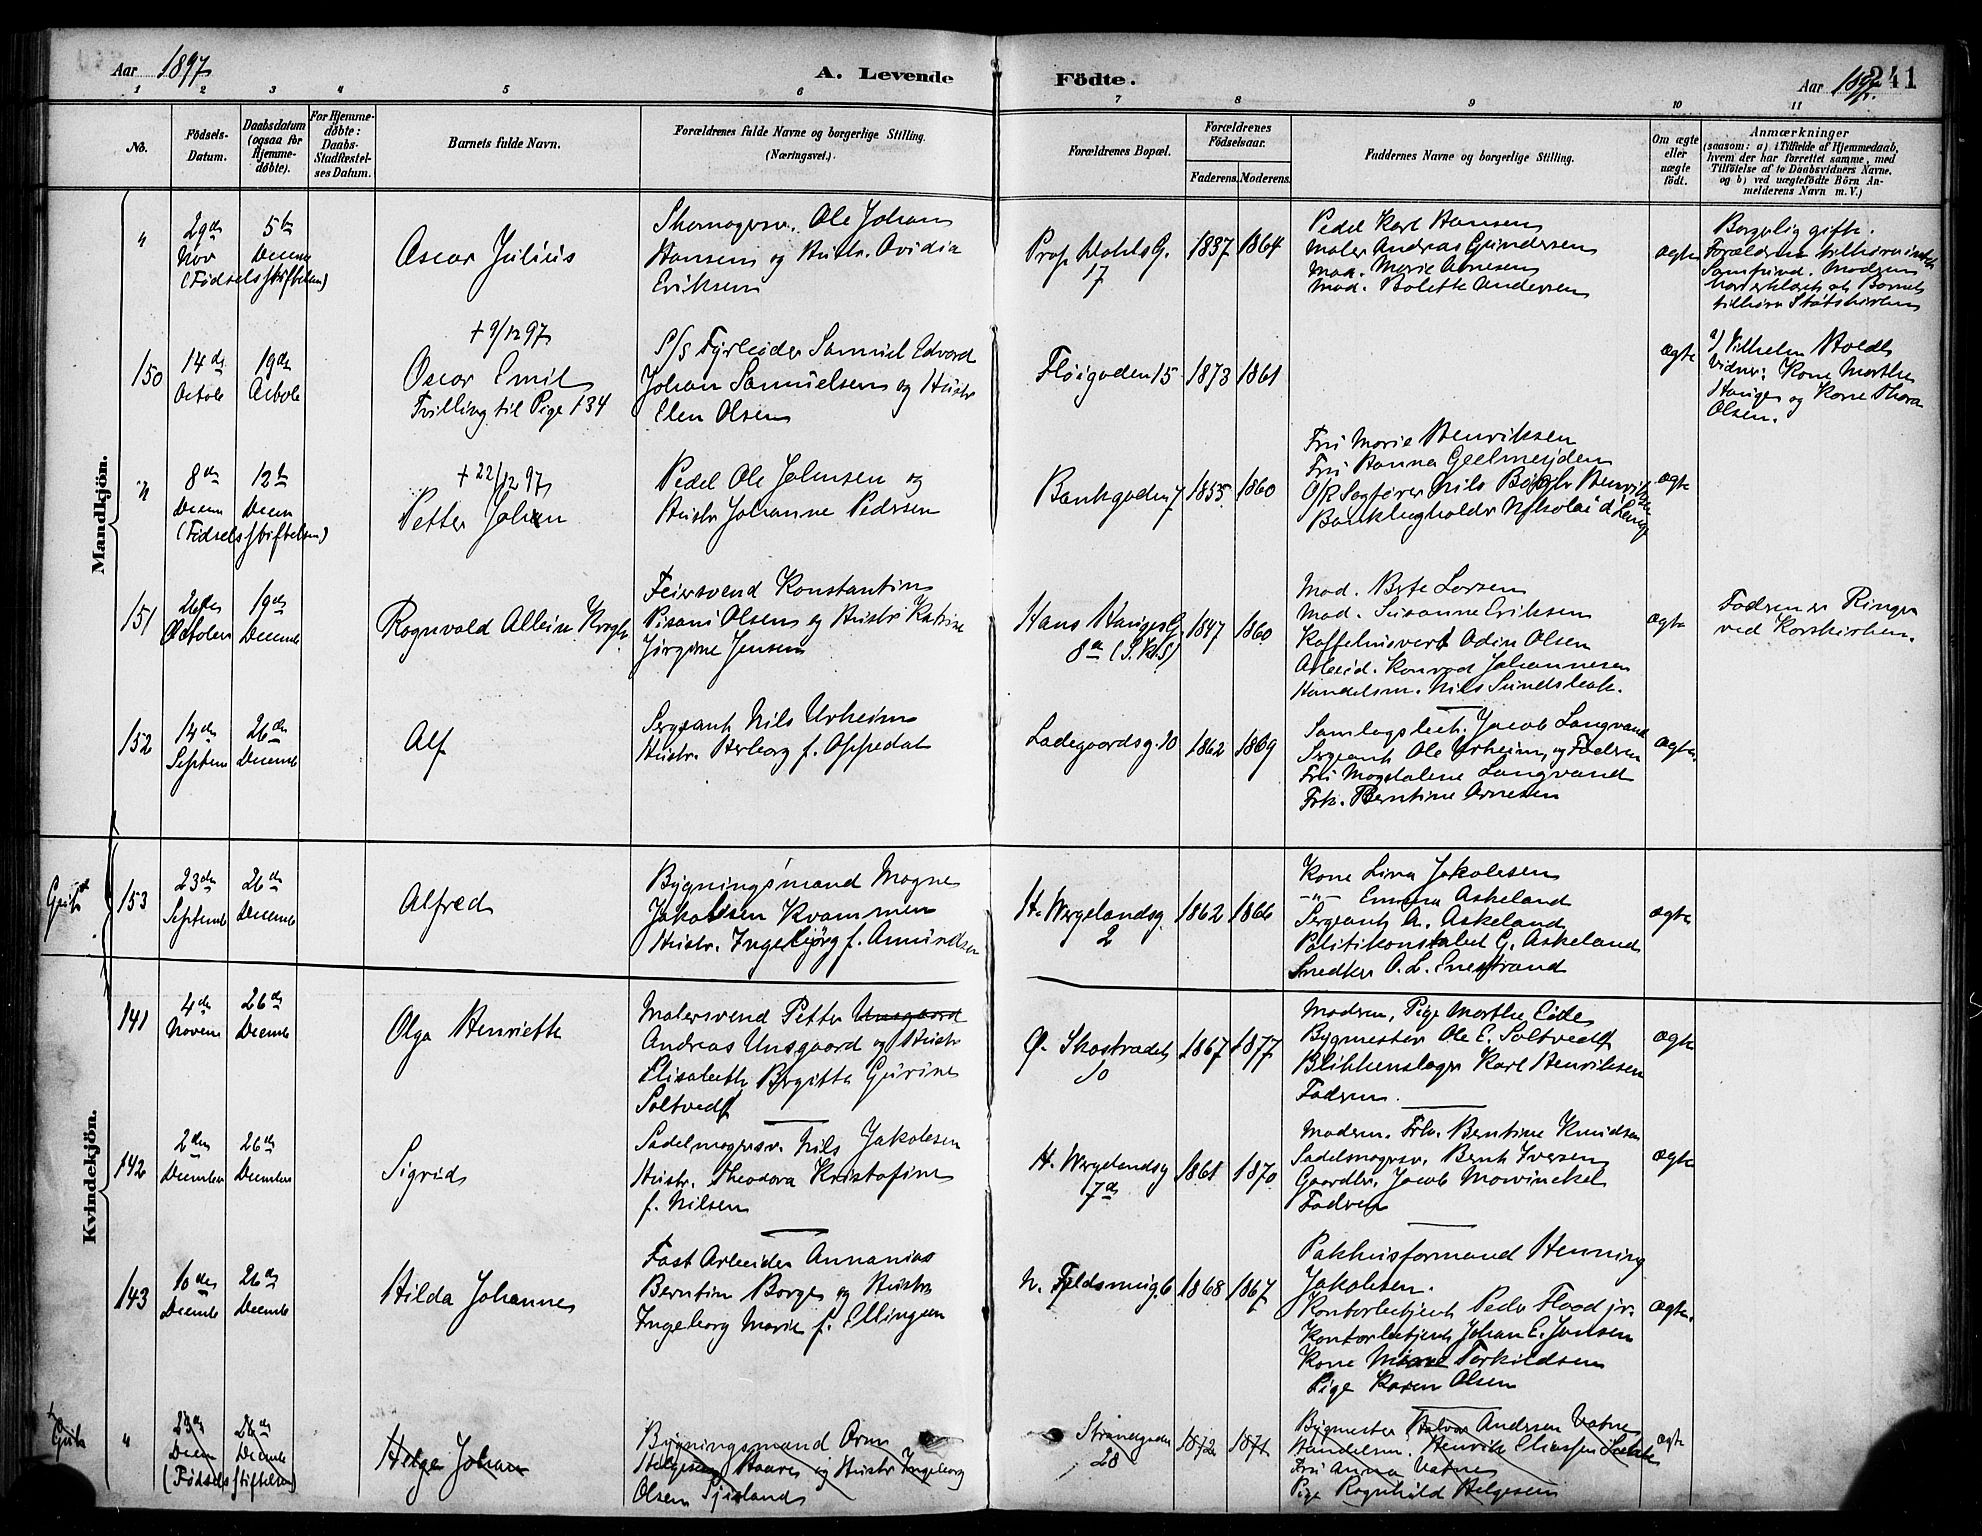 Aar 1897
A. Levende Födte.
Aar 1897.
241
1 2 3 4 5 6 7 8 9 10 11
No.
Födsels-Datum.
Daabsdatum (ogsaa for Hjemme-døbte).
For Hjemme-døbte: Daabs-Stadfæstel-ses Datum.
Barnets fulde Navn.
Forældrenes fulde Navne og borgerlige Stilling. (Næringsvei.)
Forældrenes Bopæl.
Forældrenes Fødselsaar.
Faderens. Moderens.
Faddernes Navne og borgerlige Stilling.
Om ægte eller uægte født.
Anmærkninger
(saasom: a) i Tilfælde af Hjemmedaab, hvem der har forrettet samme, med Tilføielse af to Daabsvidners Navne, og b) ved uægtefødte Börn An-melderens Navn m. V.)
Mandkjön.
" 29de Nov 5te Decem
(Fødselsstiftelsen)
Oscar Julius
Skomagersv. Ole Johan
Hansen og Hustr. Ovidia
Eriksen
Prof. Dahls G.
17
1837 1864
Pedel Karl Hansen
Maler Andreas Gundersen
Mad. Marie Arnesen
Mad. Bolette Andersen
ægte
Borgerlig gifte.
150 14de Octobe 19de Octobe
+ 9/12 97
Oscar Emil
Tvilling til Pige 134
S/S Fyrbøder Samuel Edvard
Johan Samuelsen og Hustr
Elen Olsen
Fløigaden 15
1873 1861
ægte
a) Vilhelm Holdt
Vidner: Kone Marthe
Hauge og Kone Thora
Olsen.
" 8de Decem 12te Decem
(Fødselsstiftelsen)
+ 22/12 97
Petter Johan
Pedel Ole Johnsen og
Hustr Johanne Pedersen
Bankgaden 7.
1855 1860
Fru Marie Henriksen
Fru Hanna Geelmuyden
O/R Sagfører Nils Bøgh Henriksen
Bankbugholder Nikolai d' Lange
ægte
151 26de Octobers 19de Decembe
Ragnvald Allein Krogh
Feiersvend Konstantin
Pisani Olsen og Hustr Katrine
Jørgine Jensen
Hans Hauges G.
8a (S. Kl. S)
1847 1860
Mad. Berte Larsen
Mad. Susanne Eriksen
Kaffehusvert Odin Olsen
Arbeid. Konrad Johannesen
Handelsm. Nils Sundsbak.
ægte
Faderen er Ringer
ved Korskirken.
152 14de Septem 26de Decembe
Alf
Sergeant Nils Urheim
Hustr. Herborg f. Oppedal
Ladegaardsg. 20
1862 1869
Samlagsbest. Jacob Langvand
Sergeant Ole Urheim, og Faderen
Fru Magdalene Langvand
Frk. Berntine Arnesen
ægte.
Gut
153 23de Septembe 26de Decembe
Alfred
Bygningsmand Magne
Jakobsen Kvammen
Hustr. Ingebjørg f. Amundsen
H. Wergelandsg.
2
1862 1866
Kone Lina Jakobsen
-"- Emma Askeland
Sergeant A. Askeland
Politikonstabel G. Askeland
Snedker O. L. Enestrand
ægte
Kvindekjön.
141 4de Novem 26de Decembe
Olga Henriette
Malersvend Petter Unsgaard
Andreas Unsgaard og Hustr
Elisabeth Birgitte Gurine
Saltvedt
Ø. Skostrædet
10
1867 1877
Moderen, Pige Marthe Eide
Bygmester Ole E. Saltvedt
Blikkenslager Karl Henriksen
Faderen.
ægte
142 2den December 26de December
Sigrid
Sadelmagersv. Nils Jakobsen
Hustr. Theodora Kristofine
f. Nilsen
H. Wergelandsg
7de
1868 1870
Moderen. Frk. Berntine Knudsen
Sadelmagersv. Bernt Iversen
Gaardbr. Jacob Mowinckel
Faderen
ægte
143 10de Decembe 26de Decembe
Hilda Johanne
Fast Arbeider Annanias
Berntin Borge og Hustr
Ingeborg Marie f. Ellingsen
N. Fjeldsmug. 6
1868 1867
Pakhusformand Henning
Jakobsen.
Kontorbetjent Peder Flood jr.
Kontorbetjent Johan E. Jansen
Kone Marie Torkildsen
Pige Karen Olsen
ægte.
Gut
" 23de Decem 26de Decembe
(Fødselsstiftelsen)
Helge Johan
Bygningsmand Orm
Helgesen Haare og Hustr Ingeborg
Olsen
Strandgaden
28
1872 1871
Bygmester Halvor Andersen Vatne
Handelsm. Henrik Eliassen
Fru Anna Vatne
Pige Ragnhild Helgesen
ægte